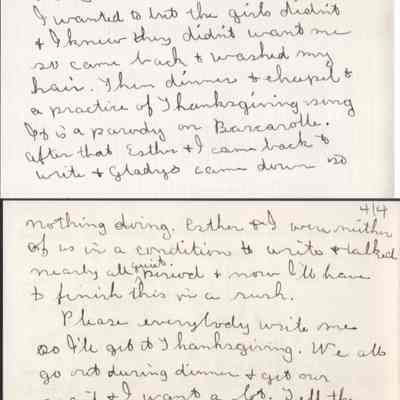 I wanted to but the girls didn't
& I knew they didn't want me
so came back & washed my
hair. Then dinner & chapel &
a practice of Thanksgiving song
It's a parody on Barcarolle.
After that Esther & I came back to
write & Gladys came down so
4/4
nothing doing. Esther & I were neither
of us in a condition to write & talked
nearly all quiet period & now I'll have
to finish this in a rush.
Please everybody write me
so I'll get it Thanksgiving. We all
go out during dinner & get our
& I want a lot. Tell the